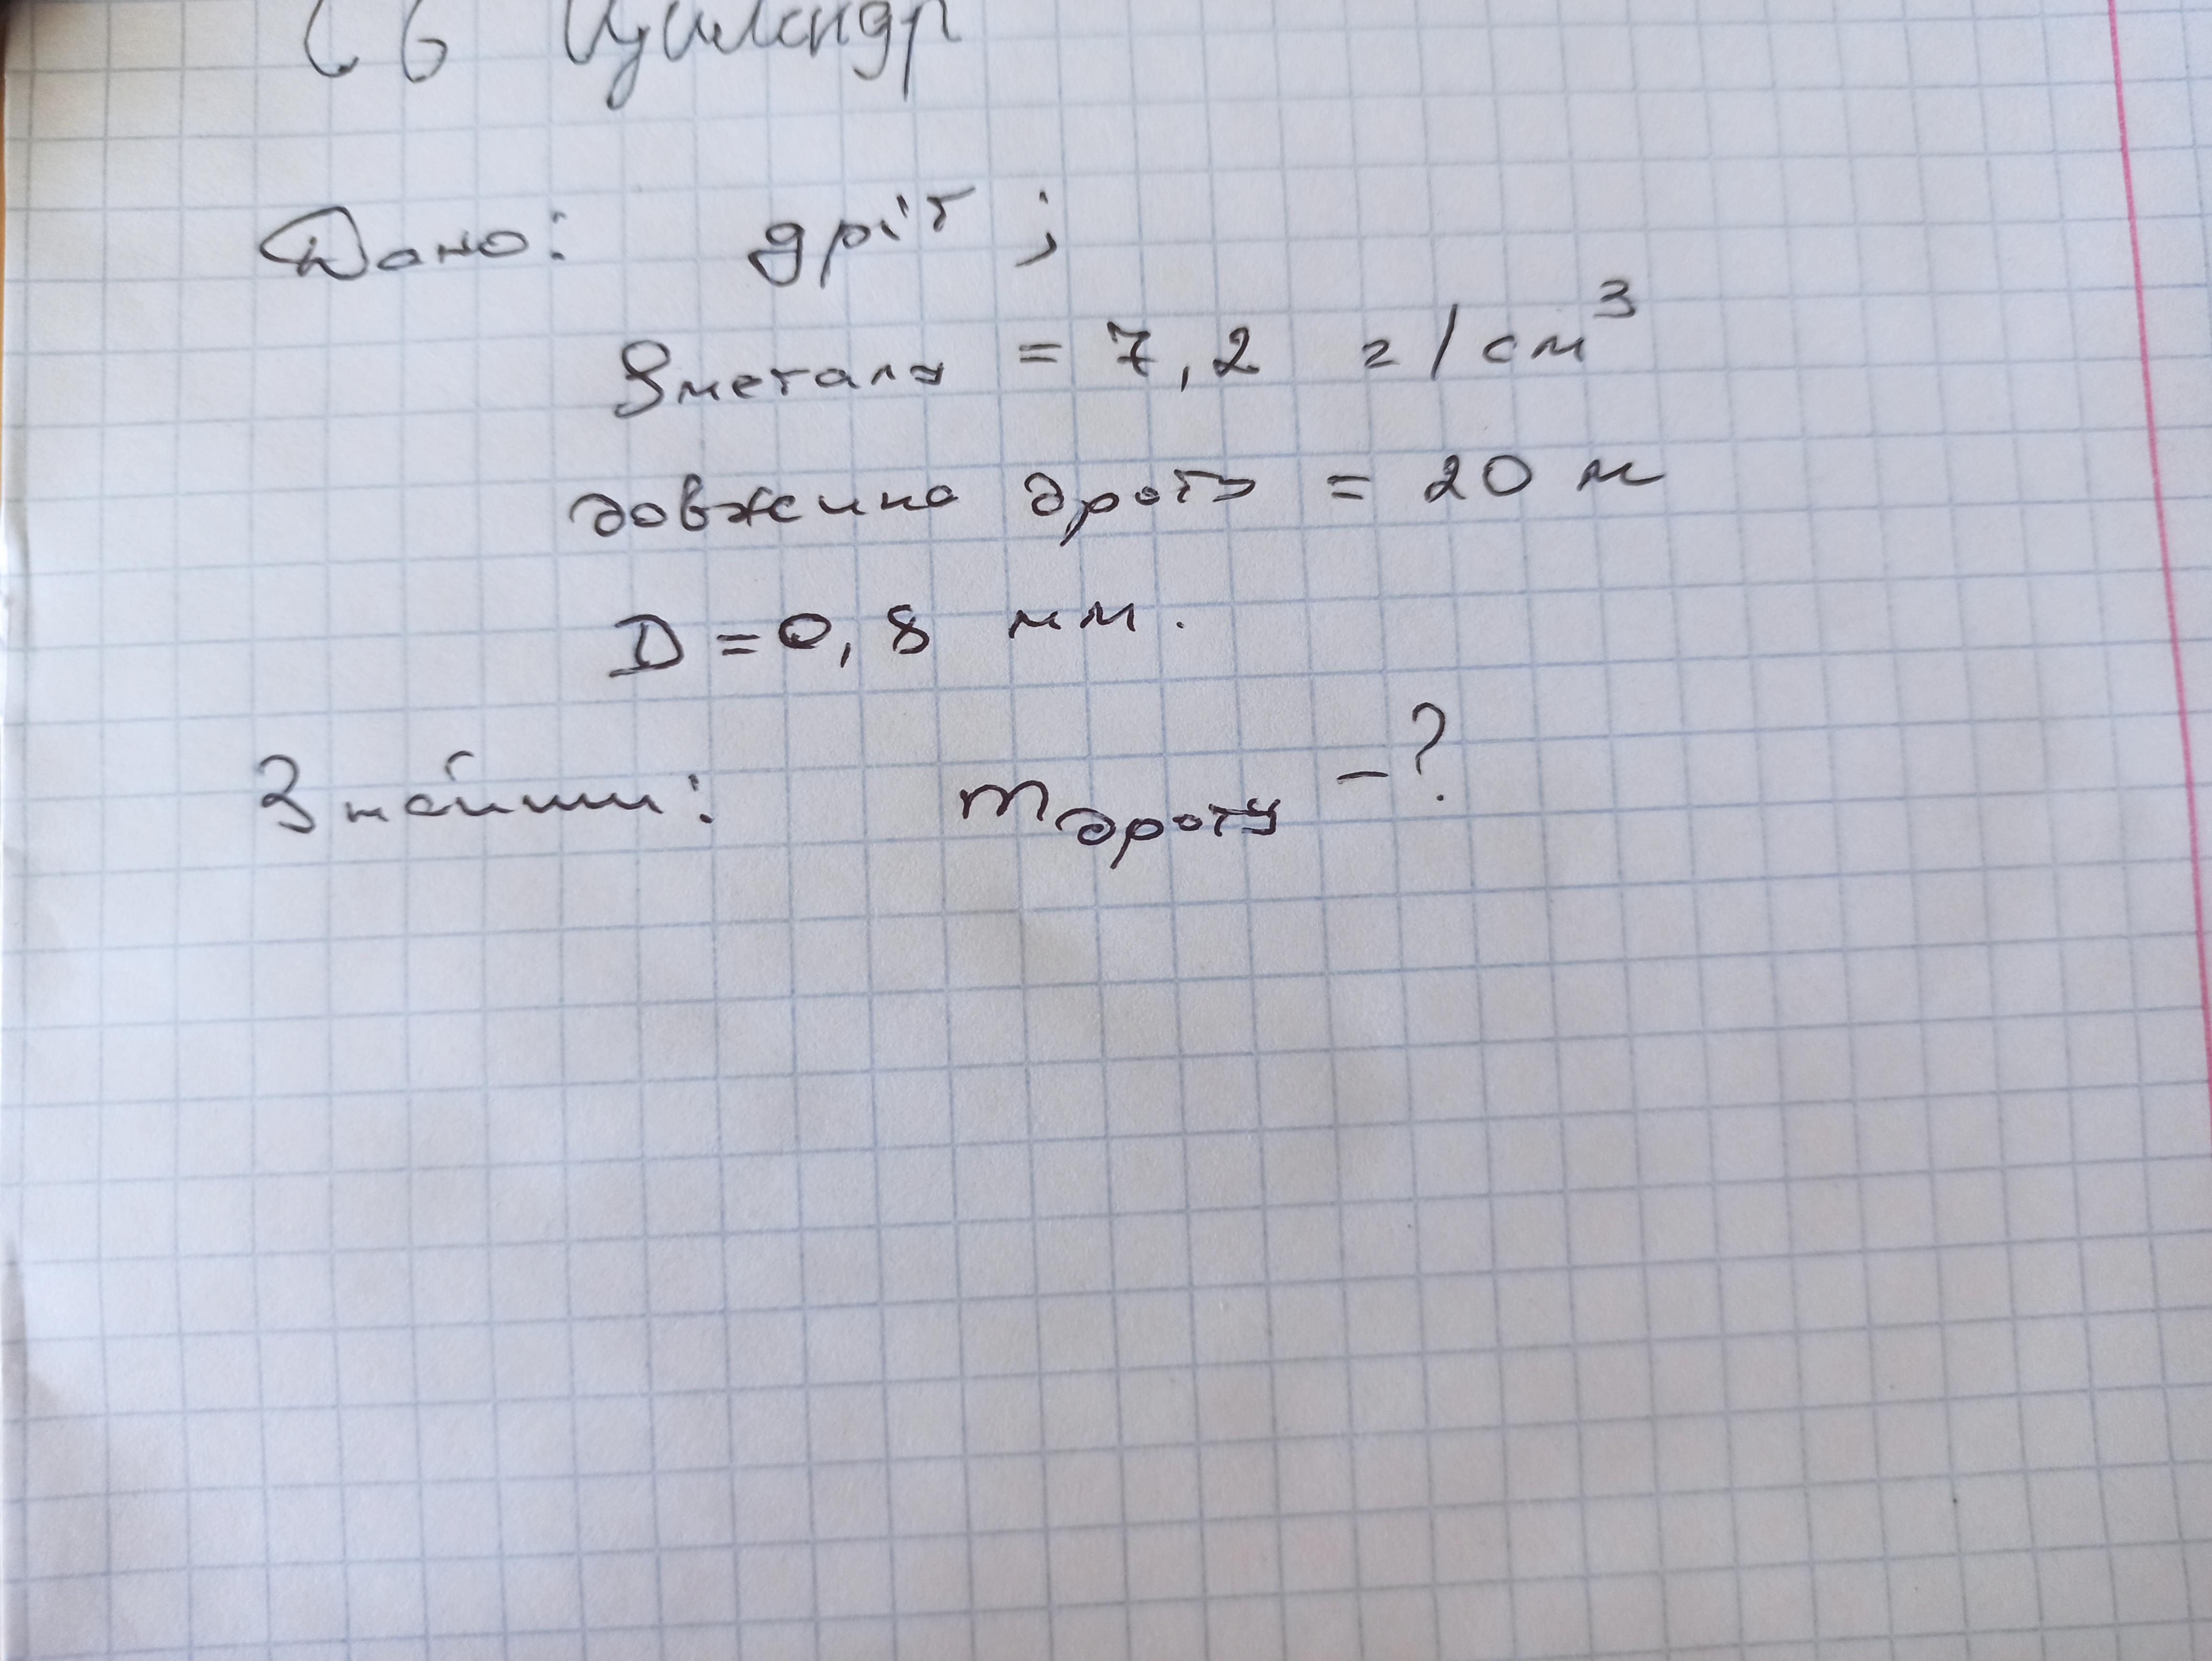 Циліндр
Дано: дріт ;
ρметалу = 7,2 г/см³
довжина дроту = 20 м
D = 0,8 мм.
Знайти: mдроту – ?